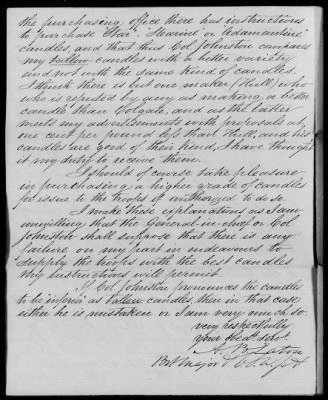 the purchasing office there has instructions
to purchase "Star" Stearine or Adamantine
candles, and that thus Col Johnston compares
my tallow candles with a better variety
and not with the same kind of candles.
I think there is but one maker (Hull) who
who is reputed by any as making a better
candle than Colgate, and as the latter
meets my advertisements with proposals at
one cent per pound less than Hull, and his
candles are good of their kind, I have thought
it my duty to receive them.
I should of course take pleasure
in purchasing a higher grade of candles
for issue to the troops if authorized to do so.
I make these explanations as I am
unwilling that the General-in-Chief or Col
Johnston shall suppose that there is any
failure on my part in endeavours to
supply the troops with the best candles
my instructions will permit.
If Col Johnston pronounces the candles
to be inferior as tallow candles, then in that case
either he is mistaken or I am very much so.
very respectfully
your obedt. servt.
A. B. Eaton
Bvt. Major &